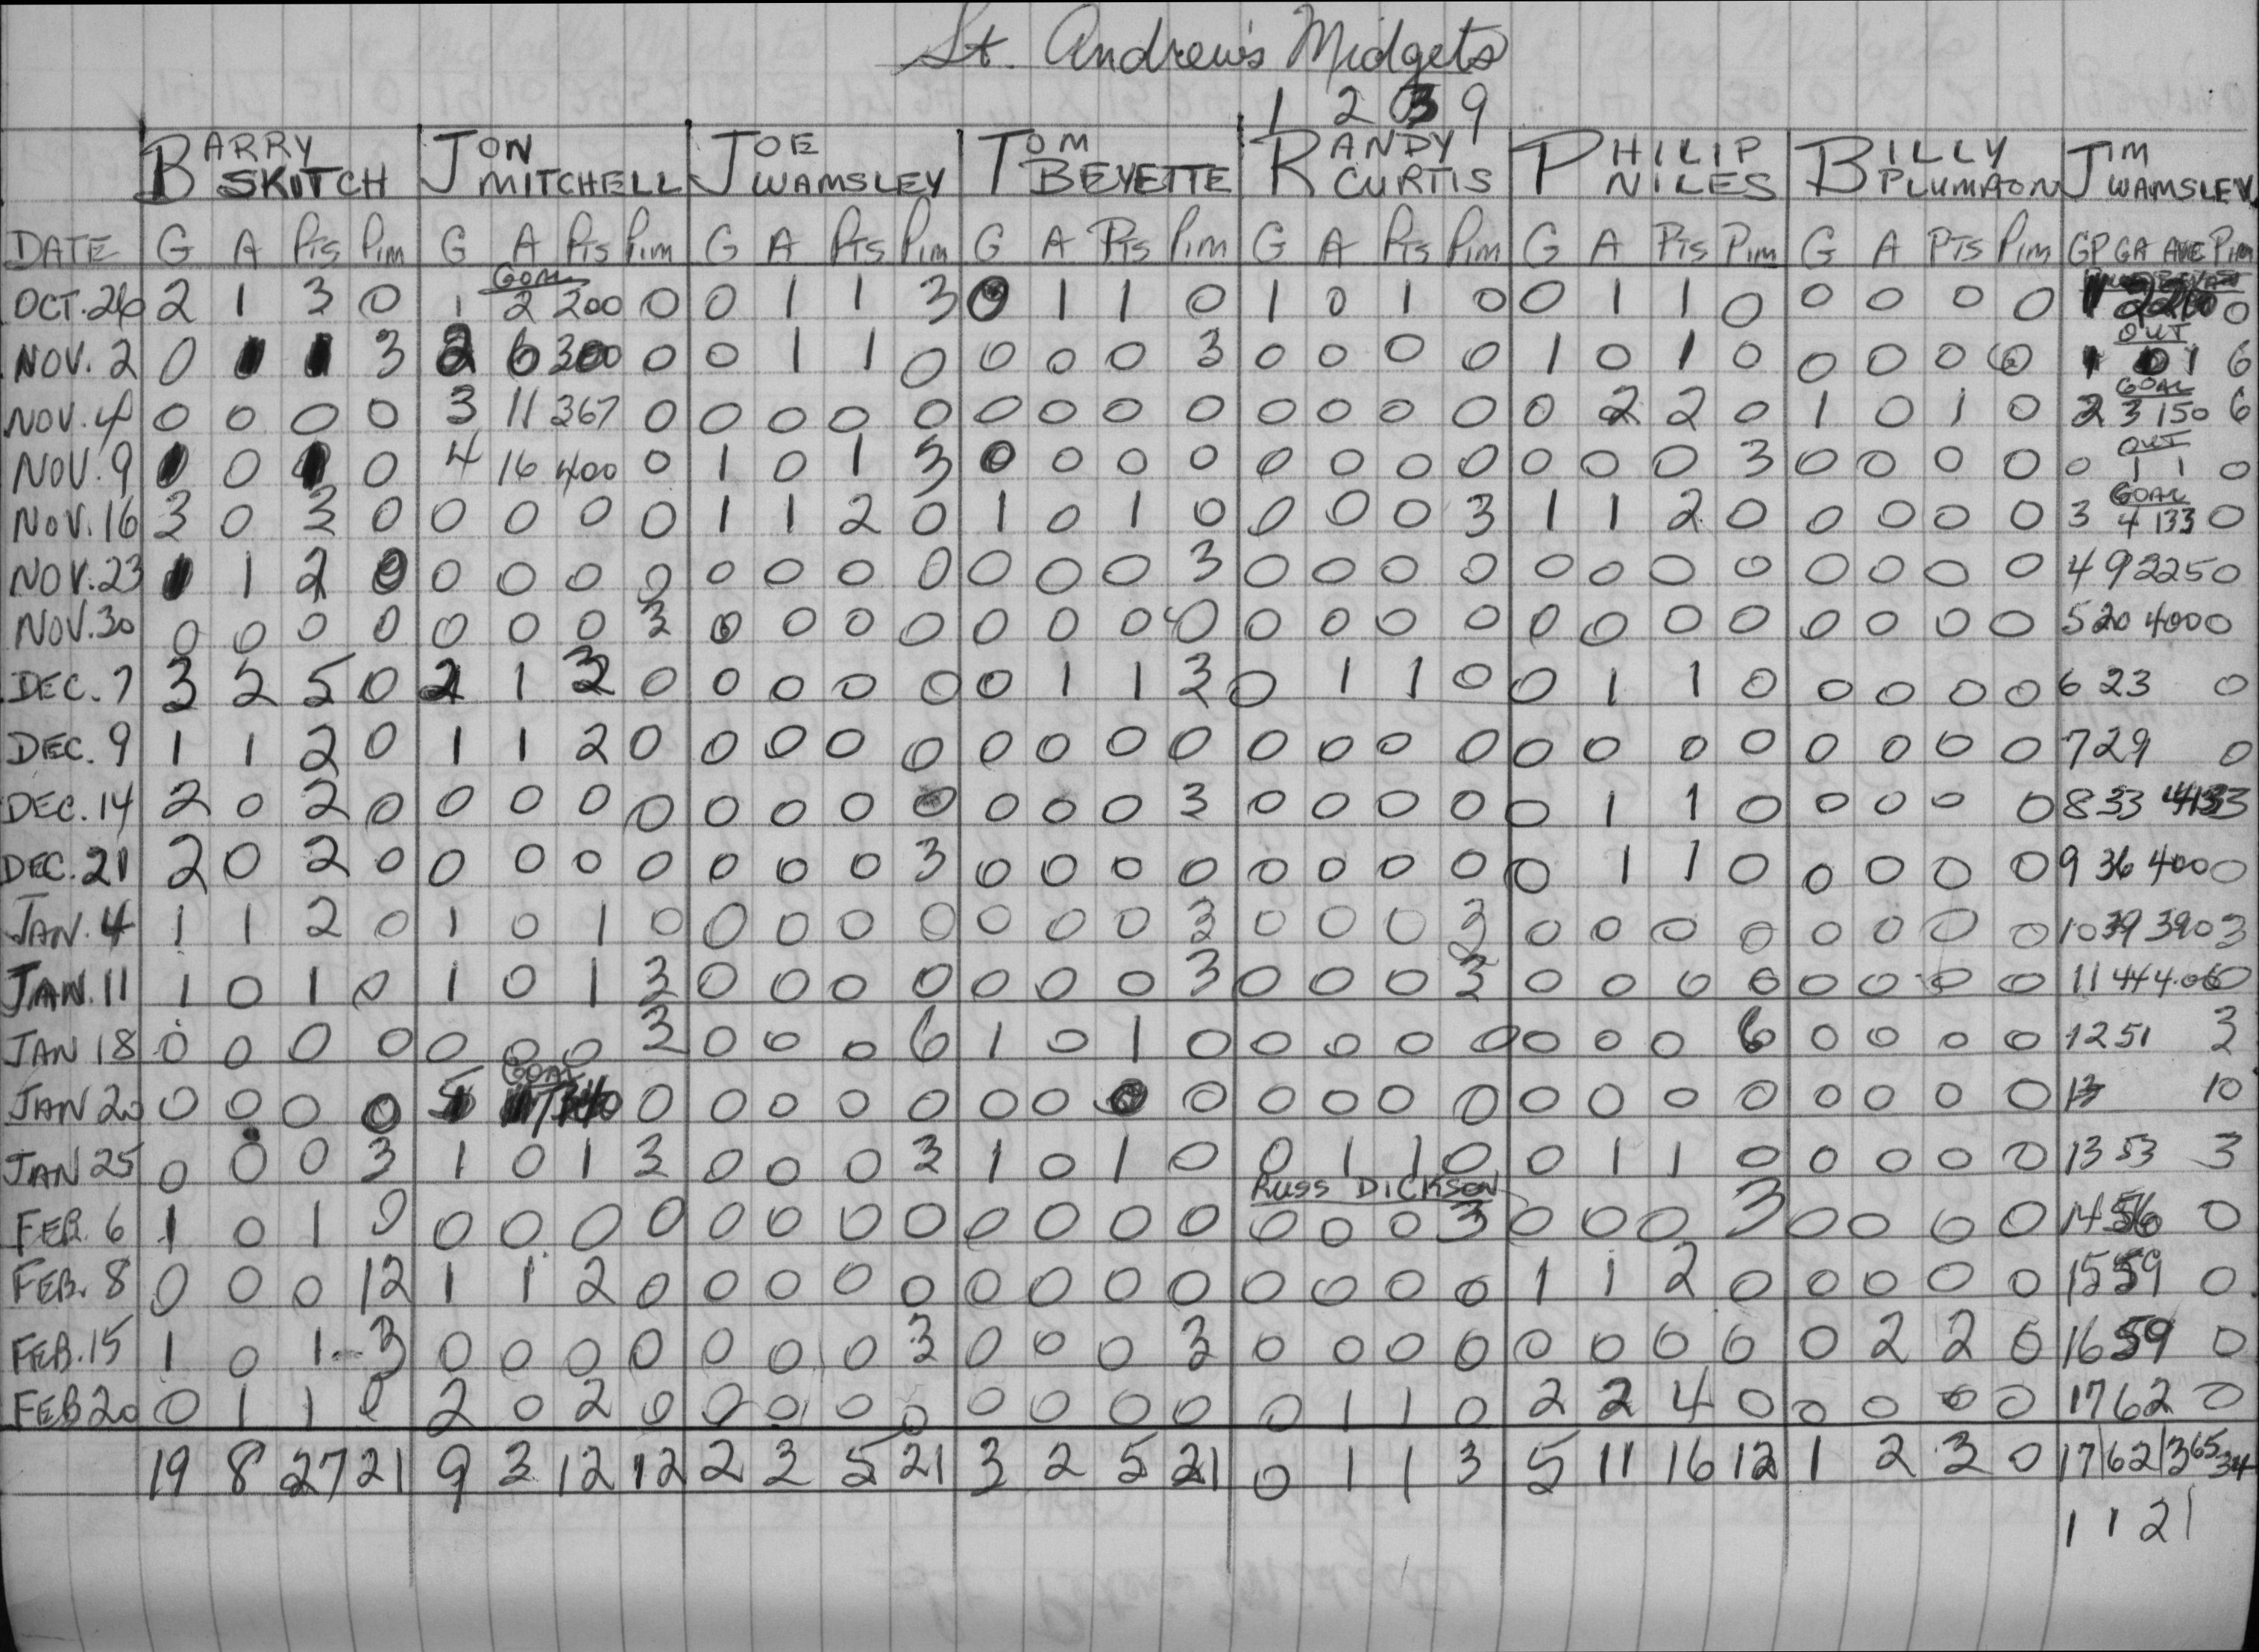 St. Andrew's Midgets
1 2 3 9
BARRY SKITCH JON MITCHELL JOE WAMSLEY TOM BEYETTE RANDY CURTIS PHILIP NILES BILLY PLUMPTON JIM WAMSLEY
DATE G A Pts Pim G A Pts Pim G A Pts Pim G A Pts Pim G A Pts Pim G A Pts Pim G A Pts Pim GP GA AVE Pim
GOAL
OCT. 26 2 1 3 0 1 2 200 0 0 1 1 3 0 1 1 0 1 0 1 0 0 1 1 0 0 0 0 0 0
OUT
NOV. 2 0 1 1 3 2 6 300 0 0 1 1 0 0 0 0 3 0 0 0 0 1 0 1 0 0 0 0 0 1 0 1 6
GOAL
NOV. 4 0 0 0 0 3 11 367 0 0 0 0 0 0 0 0 0 0 0 0 0 0 2 2 0 1 0 1 0 2 3 150 6
OUT
NOV. 9 0 0 4 16 400 0 1 0 1 3 0 0 0 0 0 0 0 0 0 0 0 3 0 0 0 0 0 1 1 0
GOAL
NOV. 16 3 0 3 0 0 0 0 0 1 1 2 0 1 0 1 0 0 0 0 3 1 1 2 0 0 0 0 0 3 4 133 0
NOV. 23 1 1 2 0 0 0 0 0 0 0 0 0 0 0 0 3 0 0 0 0 0 0 0 0 0 0 0 0 4 9 225 0
NOV. 30 0 0 0 0 0 0 0 3 0 0 0 0 0 0 0 0 0 0 0 0 0 0 0 0 0 0 0 0 5 20 400 0
DEC. 7 3 2 5 0 2 1 3 0 0 0 0 0 0 1 1 3 0 1 1 0 0 1 1 0 0 0 0 0 6 23 0
DEC. 9 1 1 2 0 1 1 2 0 0 0 0 0 0 0 0 0 0 0 0 0 0 0 0 0 0 0 0 0 7 29 0
DEC. 14 2 0 2 0 0 0 0 0 0 0 0 0 0 0 0 3 0 0 0 0 0 1 1 0 0 0 0 0 8 33 413 3
DEC. 21 2 0 2 0 0 0 0 0 0 0 0 3 0 0 0 0 0 0 0 0 0 1 1 0 0 0 0 0 9 36 400 0
JAN. 4 1 1 2 0 1 0 1 0 0 0 0 0 0 0 0 3 0 0 0 3 0 0 0 0 0 0 0 0 10 39 390 3
JAN. 11 1 0 1 0 1 0 1 3 0 0 0 0 0 0 0 3 0 0 0 3 0 0 0 0 0 0 0 0 11 44 4.06 0
JAN 18 0 0 0 0 0 0 0 3 0 0 0 6 1 0 1 0 0 0 0 0 0 0 0 6 0 0 0 0 12 51 3
GOAL
JAN 20 0 0 0 0 5 17 340 0 0 0 0 0 0 0 0 0 0 0 0 0 0 0 0 0 0 0 0 0 13 10
JAN 25 0 0 0 3 1 0 1 3 0 0 0 3 1 0 1 0 0 1 1 0 0 1 1 0 0 0 0 0 13 53 3
RUSS DICKSON
FEB. 6 1 0 1 0 0 0 0 0 0 0 0 0 0 0 0 0 0 0 0 3 0 0 0 3 0 0 0 0 14 56 0
FEB. 8 0 0 0 12 1 1 2 0 0 0 0 0 0 0 0 0 0 0 0 0 1 1 2 0 0 0 0 0 15 59 0
FEB. 15 1 0 1 3 0 0 0 0 0 0 0 3 0 0 0 3 0 0 0 0 0 0 0 0 0 2 2 0 16 59 0
FEB 20 0 1 1 0 2 0 2 0 0 0 0 0 0 0 0 0 0 1 1 0 2 2 4 0 0 0 0 0 17 62 0
19 8 27 21 9 3 12 12 2 3 5 21 3 2 5 21 0 1 1 3 5 11 16 12 1 2 3 0 17 62 365 34
1 1 2 1